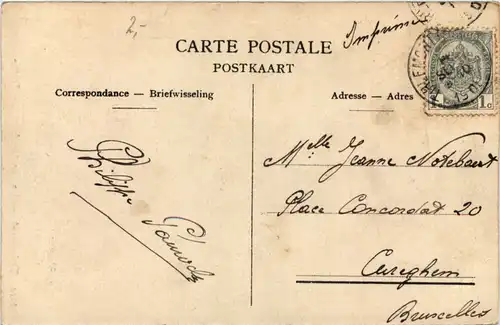 2,-
Imprimé
CARTE POSTALE
POSTKAART
Correspondance — Briefwisseling
Adresse — Adres
1 1c
Philippe
Melle Jeanne Notebaert
Place Concordat 20
Cureghem
Bruxelles